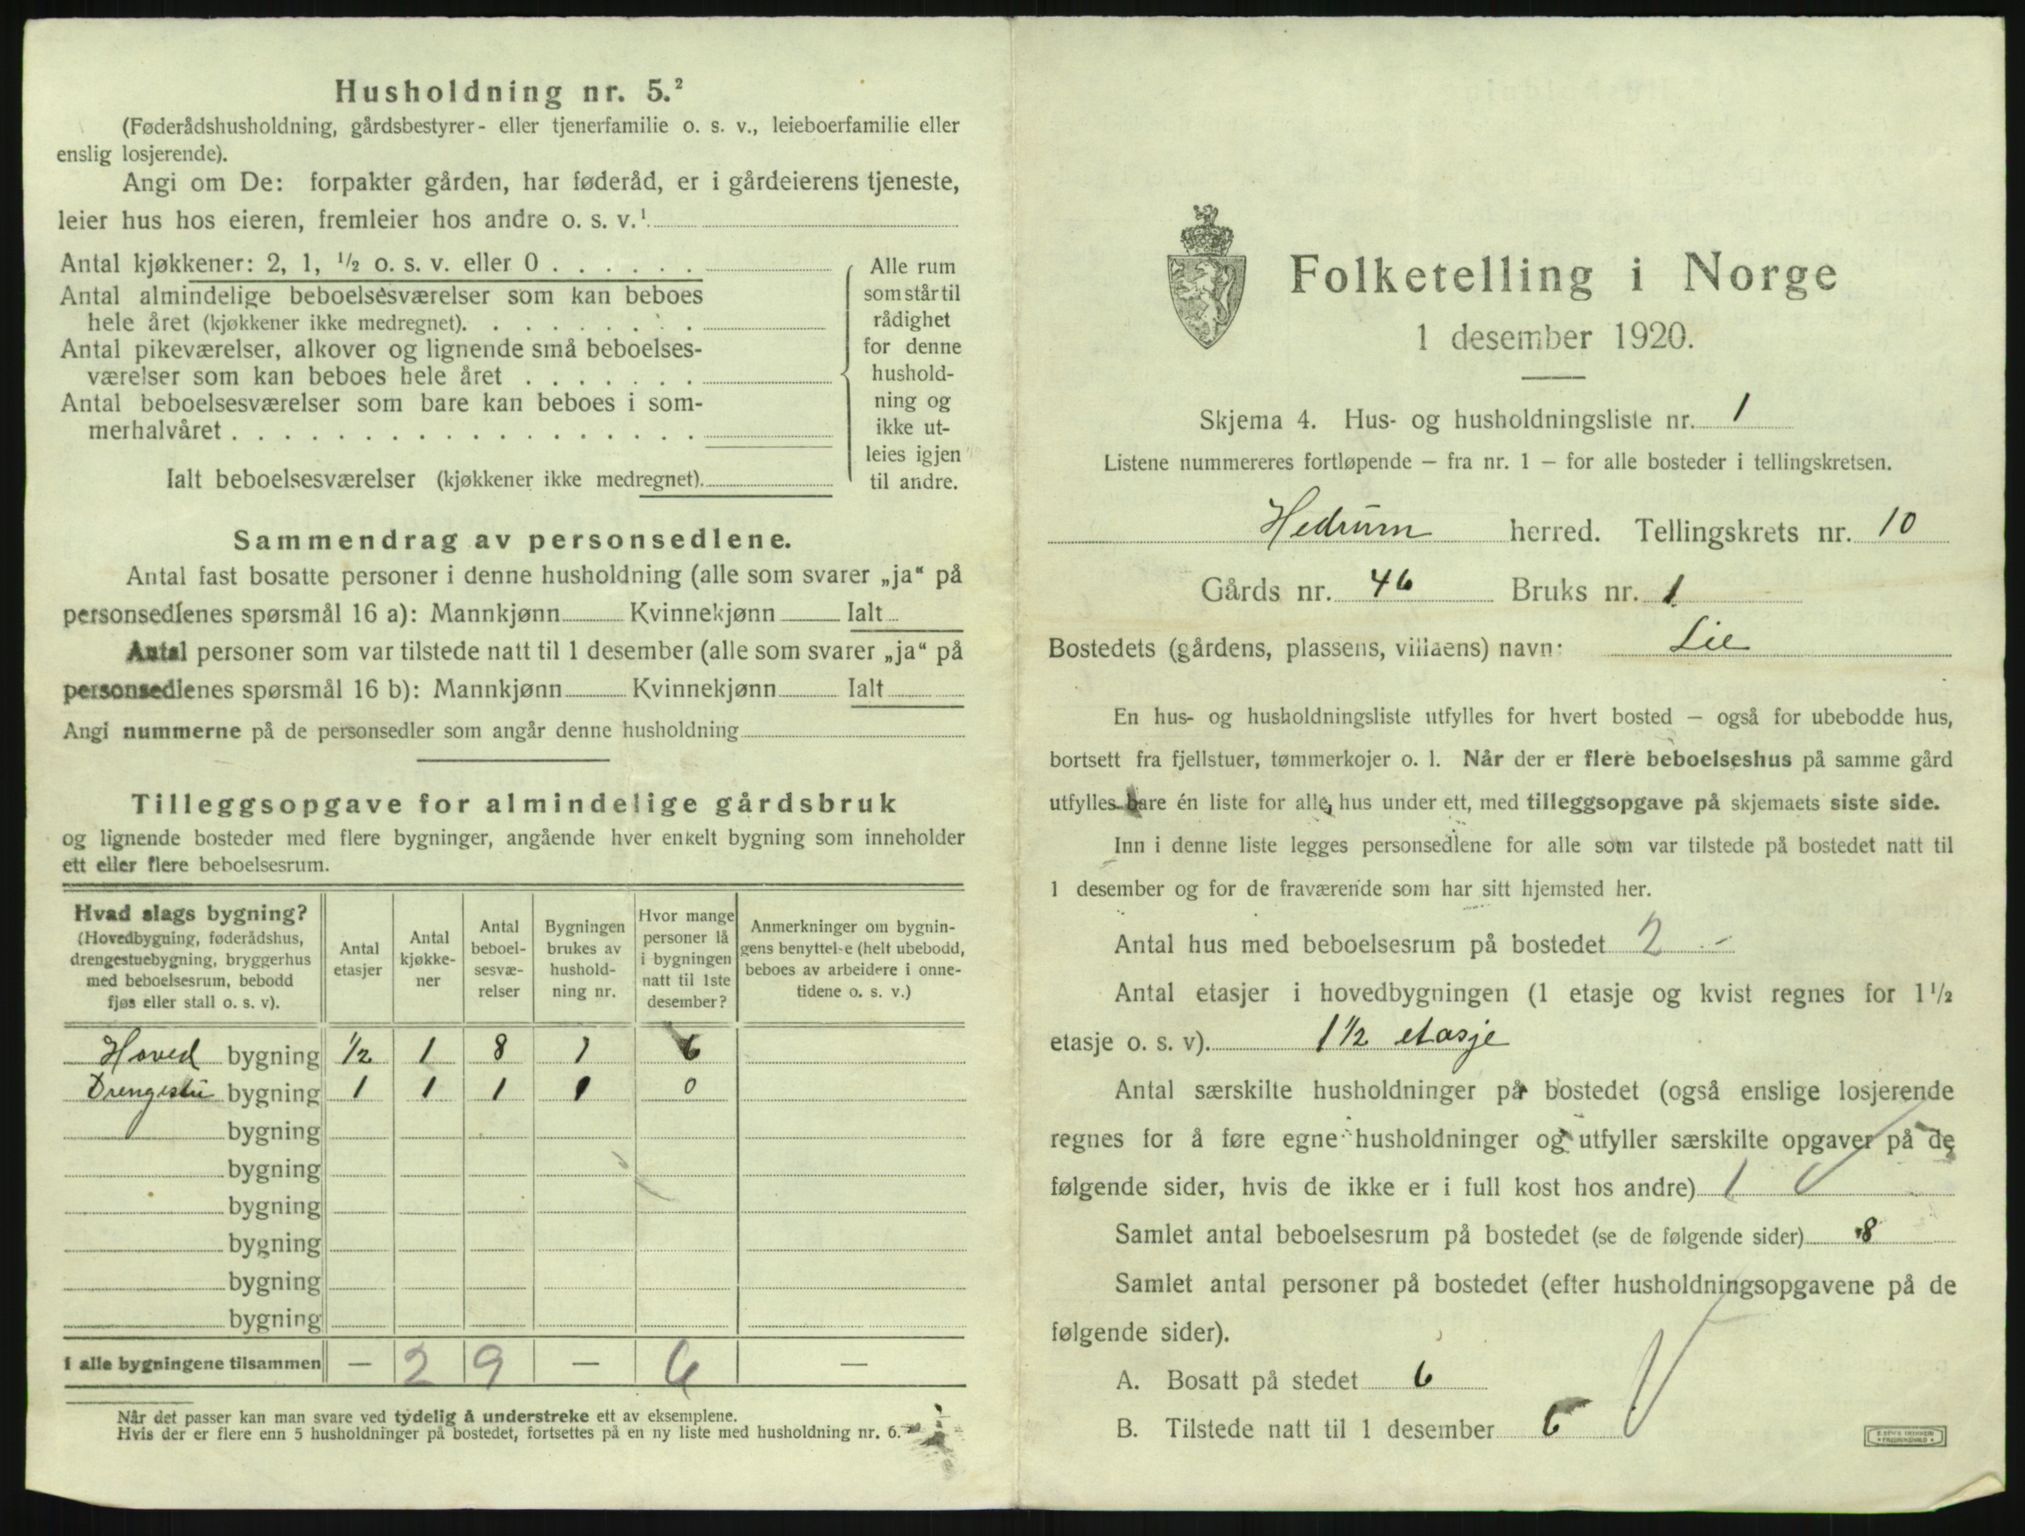 Husholdning nr. 5.²
(Føderådshusholdning, gårdsbestyrer- eller tjenerfamilie o. s. v., leieboerfamilie eller
enslig losjerende).
Angi om De: forpakter gården, har føderåd, er i gårdeierens tjeneste,
leier hus hos eieren, fremleier hos andre o. s. v.¹
Antal kjøkkener: 2, 1, ¹/₂ o. s. v. eller 0 . . . . . .
Antal almindelige beboelsesværelser som kan beboes
hele året (kjøkkener ikke medregnet). . . . . . . . .
Antal pikeværelser, alkover og lignende små beboelses-
værelser som kan beboes hele året . . . . . . .
Antal beboelsesværelser som bare kan beboes i som-
merhalvåret . . . . . . . . . . . . . . . . . .
Ialt beboelsesværelser (kjøkkener ikke medregnet).
Alle rum
som står til
rådighet
for denne
hushold-
ning og
ikke ut-
leies igjen
til andre.
Sammendrag av personsedlene.
Antal fast bosatte personer i denne husholdning (alle som svarer „ja“ på
personsedlenes spørsmål 16 a): Mannkjønn Kvinnekjønn Ialt
Antal personer som var tilstede natt til 1 desember (alle som svarer „ja“ på
personsedlenes spørsmål 16 b): Mannkjønn Kvinnekjønn Ialt
Angi nummerne på de personsedler som angår denne husholdning
Tilleggsopgave for almindelige gårdsbruk
og lignende bosteder med flere bygninger, angående hver enkelt bygning som inneholder
ett eller flere beboelsesrum.
Hvad slags bygning?
(Hovedbygning, føderådshus,
drengestuebygning, bryggerhus
med beboelsesrum, bebodd
fjøs eller stall o. s. v).
Antal
etasjer
Antal
kjøkke-
ner
Antal
beboel-
sesvæ-
relser
Bygningen
brukes av
hushold-
ning nr.
Hvor mange
personer lå
i bygningen
natt til 1ste
desember?
Anmerkninger om bygnin-
gens benyttelse (helt ubebodd,
beboes av arbeidere i onne-
tidene o. s. v.)
Hoved bygning ½ 1 8 1 6
Drengestu bygning 1 1 1 1 0
bygning
bygning
bygning
bygning
bygning
bygning
I alle bygningene tilsammen — 2 9 — 6 —
Når det passer kan man svare ved tydelig å understreke ett av eksemplene.
Hvis der er flere enn 5 husholdninger på bostedet, fortsettes på en ny liste med husholdning nr. 6.
Folketelling i Norge
1 desember 1920.
Skjema 4. Hus- og husholdningsliste nr. 1
Listene nummereres fortløpende – fra nr. 1 – for alle bosteder i tellingskretsen.
Hedrum herred. Tellingskrets nr. 10
Gårds nr. 46 Bruks nr. 1
Bostedets (gårdens, plassens, villaens) navn: Lie
En hus- og husholdningsliste utfylles for hvert bosted – også for ubebodde hus,
bortsett fra fjellstuer, tømmerkojer o. l. Når der er flere beboelseshus på samme gård
utfylles bare én liste for alle hus under ett, med tilleggsopgave på skjemaets siste side.
Inn i denne liste legges personsedlene for alle som var tilstede på bostedet natt til
1 desember og for de fraværende som har sitt hjemsted her.
Antal hus med beboelsesrum på bostedet 2 –
Antal etasjer i hovedbygningen (1 etasje og kvist regnes for 1¹/₂
etasje o. s. v). 1½ etasje
Antal særskilte husholdninger på bostedet (også enslige losjerende
regnes for å føre egne husholdninger og utfyller særskilte opgaver på de
følgende sider, hvis de ikke er i full kost hos andre) 1
Samlet antal beboelsesrum på bostedet (se de følgende sider) 8
Samlet antal personer på bostedet (efter husholdningsopgavene på de
følgende sider).
A. Bosatt på stedet 6
B. Tilstede natt til 1 desember 6